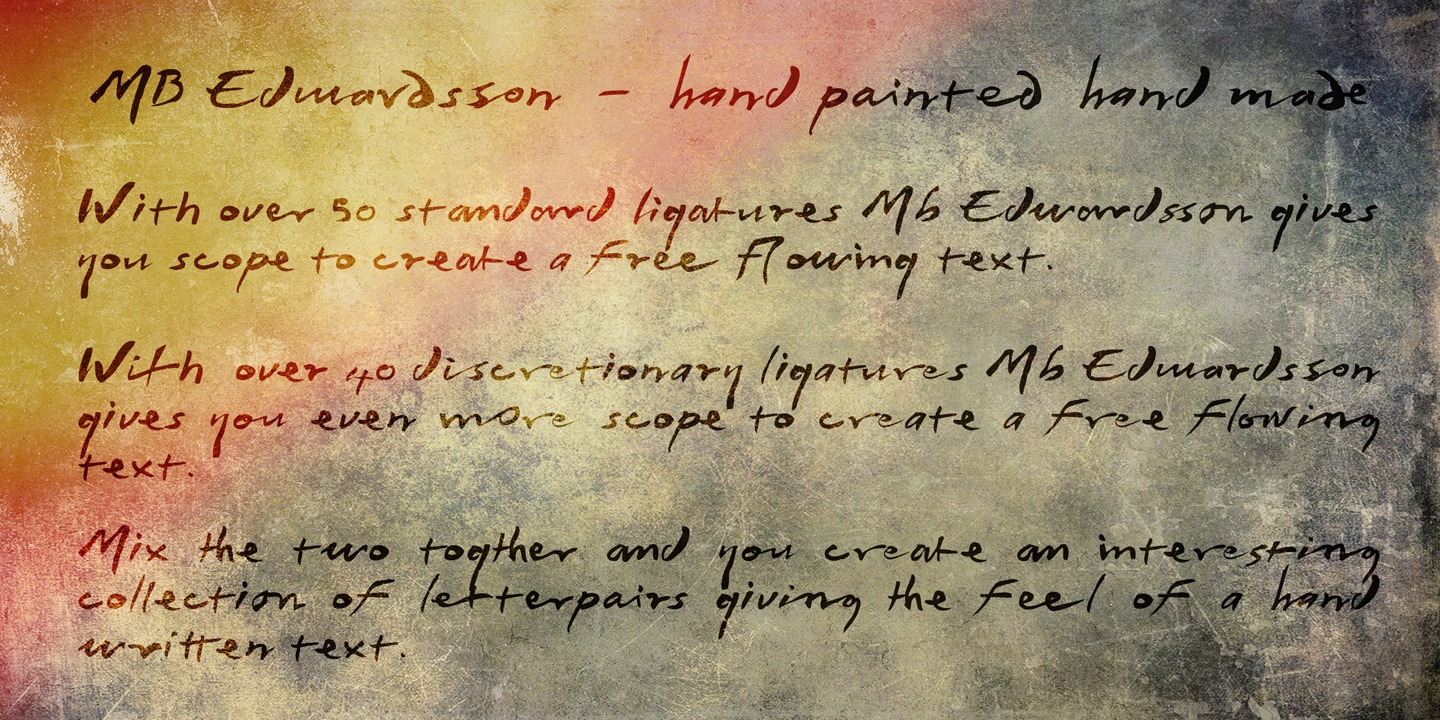 MB Edwardsson - hand painted hand made
With over 50 standard ligatures Mb Edwardsson gives
you scope to create a free flowing text.
With over 40 discretionary ligatures Mb Edwardsson
gives you even more scope to create a free flowing
text.
Mix the two togther and you create an interesting
collection of letterpairs giving the feel of a hand
written text.